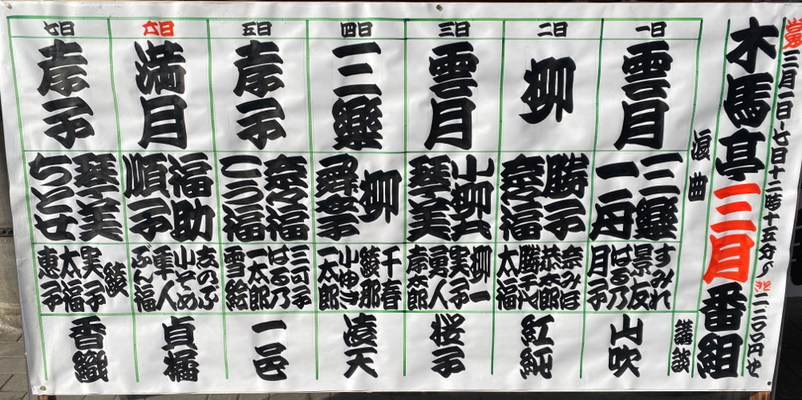 三月一日~七日十二時十五分~
二二〇〇円
木馬亭三月番組
浪曲
講談
一日
雲月
三楽
一舟
すみれ
景友
はる乃
月子
山吹
二日
柳
勝子
奈々福
奈みほ
恭太郎
勝千代
太福
紅純
三日
雲月
小柳
琴美
柳一
実子
勇人
孝太郎
桜子
四日
三楽
柳
舞幸
千春
綾那
小ゆき
一太郎
凌天
五日
孝子
奈々福
こう福
三可子
はる乃
一太郎
雪絵
一邑
六日
満月
福助
順子
きのぶ
小そめ
隼人
ぶん福
貞橘
七日
孝子
琴美
ちとせ
綾
実子
太福
恵子
香織